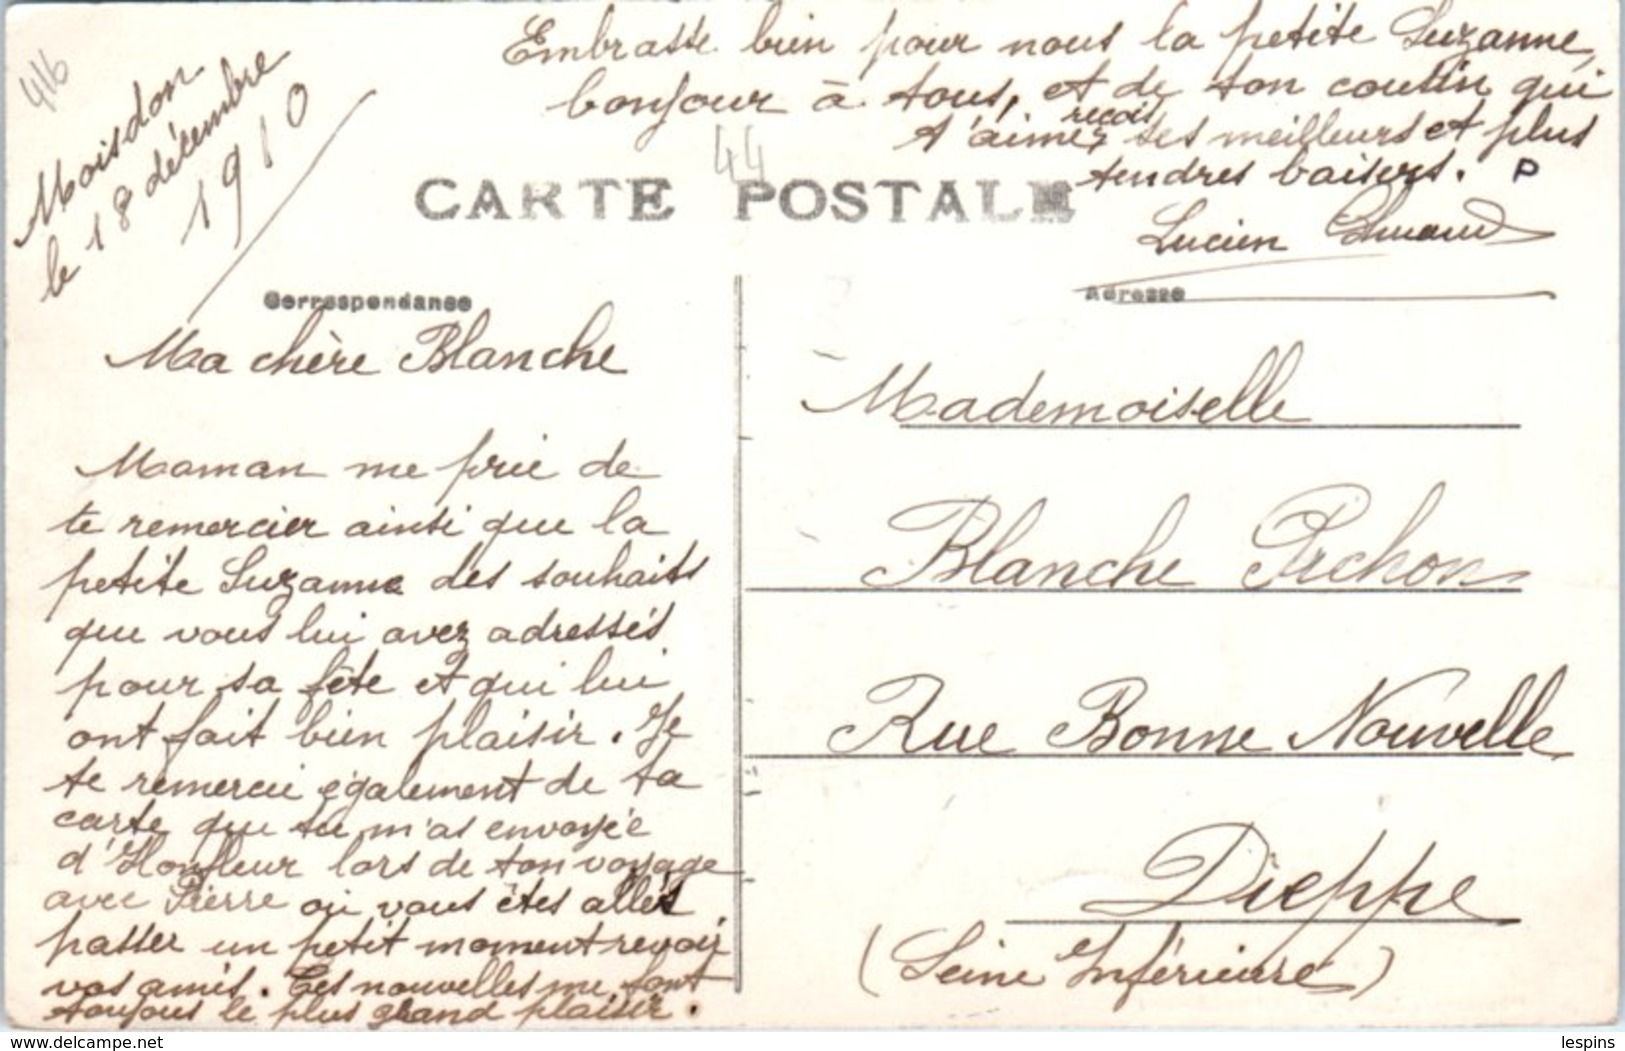 416
Moisdon
le 18 décembre
1910
Embrasse bien pour nous la petite Suzanne,
bonjour à tous, et de ton cousin qui
t'aime, reçois ses meilleurs et plus
tendres baisers. P
Lucien
44
CARTE POSTALE
Correspondance
Adresse
Ma chère Blanche
Maman me prie de
te remercier ainsi que la
petite Suzanne des souhaits
que vous lui avez adressés
pour sa fête et qui lui
ont fait bien plaisir. Je
te remercie également de ta
carte que tu m'as envoyée
d'Honfleur lors de ton voyage
avec Pierre où vous êtes allés
passer un petit moment revoir
vos amis. Tes nouvelles me font
toujours le plus grand plaisir.
Mademoiselle
Blanche Pichon
Rue Bonne Nouvelle
Dieppe
(Seine Inférieure)
delcampe.net
lespins